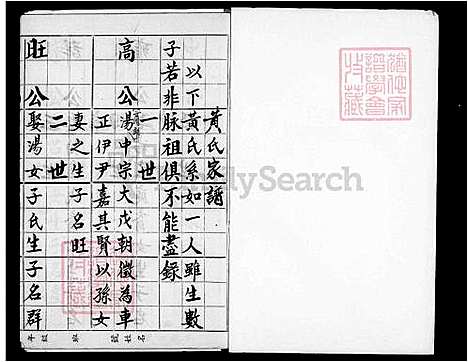 黃氏家譜
以下黃氏系如一人雖生數
子若非脉祖俱不能盡錄
一世
高公
湯中宗大戊朝徵為車
正伊尹嘉其賢以孫女
妻之生子名旺
二世
旺公
娶湯女子氏生子名群
FamilySearch